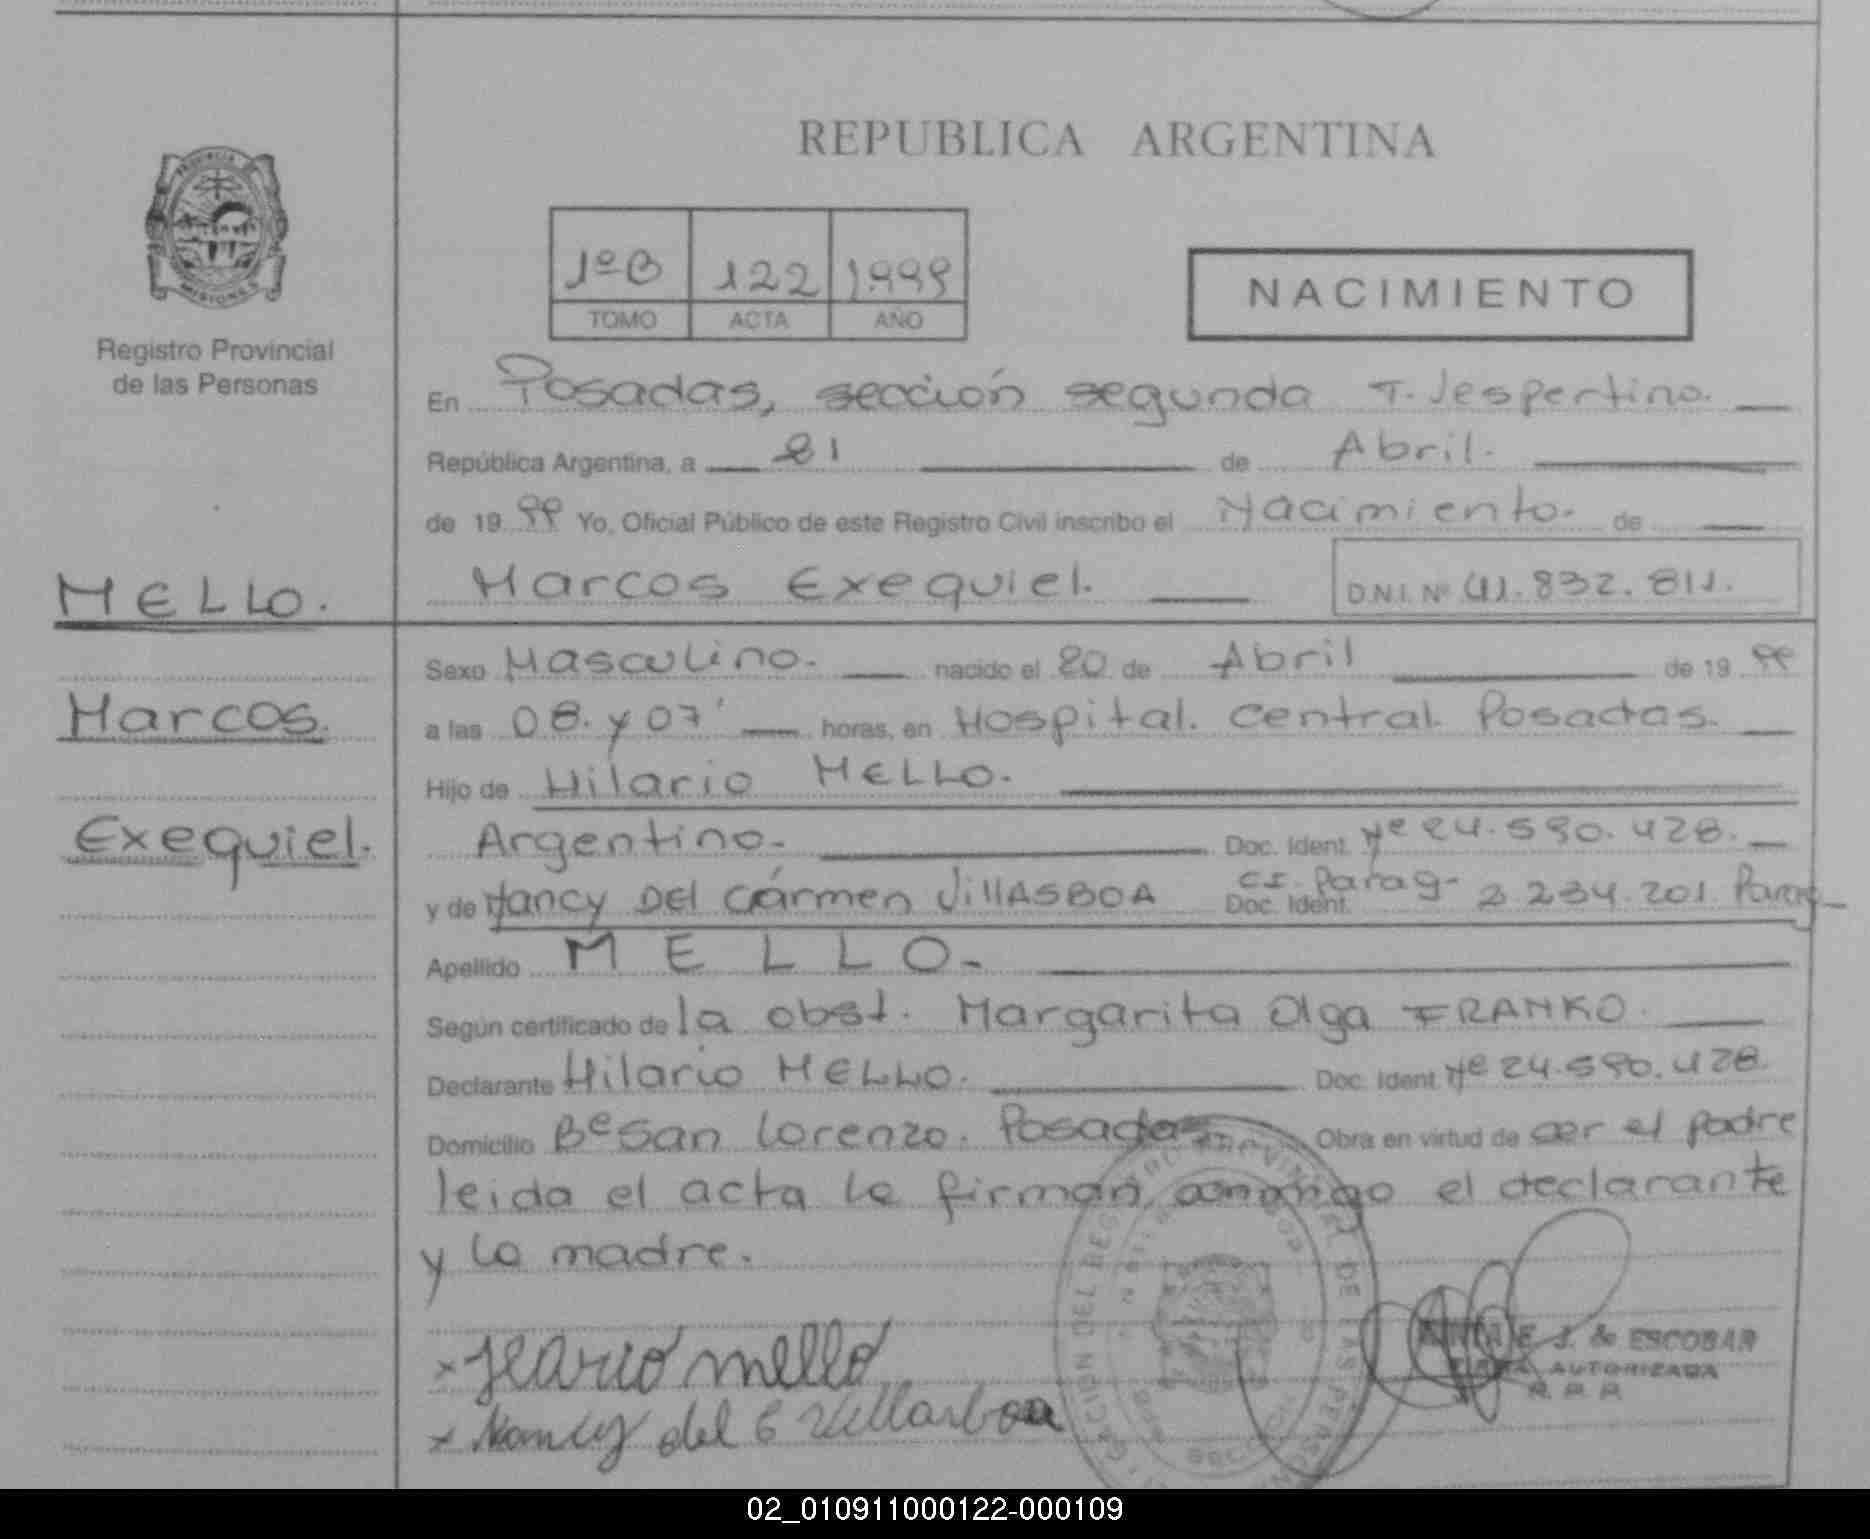 REPUBLICA ARGENTINA
PROVINCIA
MISIONES
Registro Provincial
de las Personas
1ºB 122 1.999
TOMO ACTA AÑO
NACIMIENTO
En Posadas, sección segunda T. Vespertino.
República Argentina, a 21 de Abril.
de 1999 Yo, Oficial Público de este Registro Civil inscribo el Nacimiento. de
MELLO.
Marcos Exequiel. D.N.I. Nº 41.832.811.
Sexo Masculino. nacido el 20 de Abril de 1999
Marcos.
a las 08. y 07' horas, en Hospital. Central. Posadas.
Hijo de Hilario MELLO.
Exequiel.
Argentino. Doc. Ident. Nº 24.590.428.
y de Nancy DEL Cármen VillASBOA Doc. Ident. CI. Parag. 3.234.201. Parag
Apellido MELLO.
Según certificado de la obst. Margarita Olga FRANKO.
Declarante Hilario MELLO. Doc. Ident Nº 24.590.428.
Domicilio Bº San Lorenzo. Posadas Obra en virtud de ser el padre
leida el acta la firman conmigo el declarante
y la madre.
x Ilario mello
x Nancy del C Villasboa
E. J. de ESCOBAR
FIRMA AUTORIZADA
R. P. P.
02_010911000122-000109